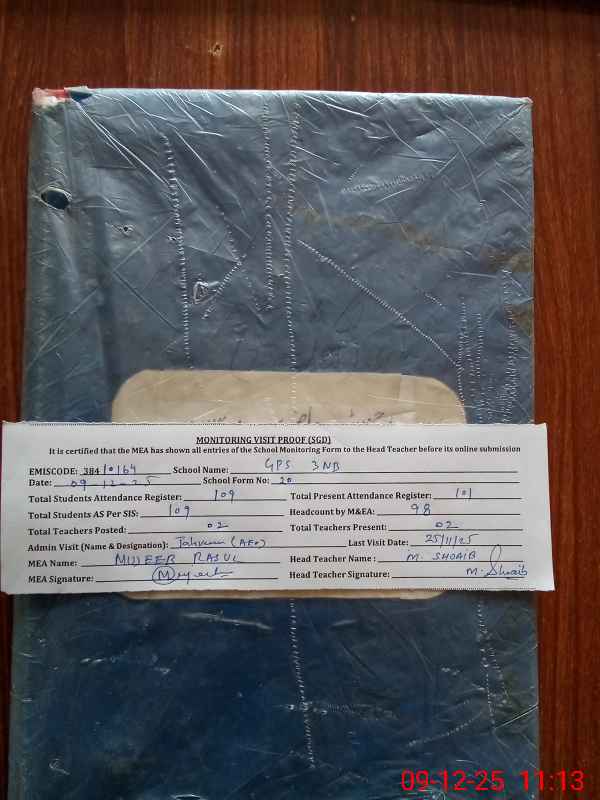 MONITORING VISIT PROOF (SGD)
It is certified that the MEA has shown all entries of the School Monitoring Form to the Head Teacher before its online submission
EMISCODE: 38410164 School Name: GPS 3NB
Date: 09-12-25 School Form No: 20
Total Students Attendance Register: 109 Total Present Attendance Register: 101
Total Students AS Per SIS: 109 Headcount by M&EA: 98
Total Teachers Posted: 02 Total Teachers Present: 02
Admin Visit (Name & Designation): (AEO) Last Visit Date: 25/11/25
MEA Name: MUJEEB RASUL Head Teacher Name: M. SHOAIB
MEA Signature: Head Teacher Signature: M. Shoaib
09-12-25 11:13